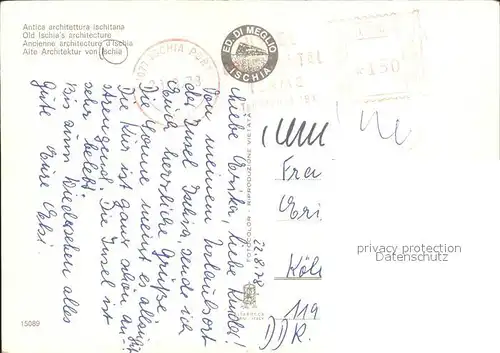 Antica architettura ischitana
Old Ischia's architecture
Ancienne architecture d'Ischia
Alte Architektur von Ischia
ED. DI MEGLIO
ISCHIA
ISCHIA
150
Liebe Erika, liebe
Von meinem Urlaubsort
der Insel Ischia, sende ich
Euch herzliche Grüße.
Die Sonne meint es
Die Kur ist ganz schön an-
strengend. Die Insel ist
sehr belebt.
Bis zum Wiedersehen alles
Gute Eure Elsi.
FOTOCOLOR - RIPRODUZIONE VIETATA
22.8.78
Frau
Eri
Köl
119
DDR.
privacy protection
Datenschutz
15089